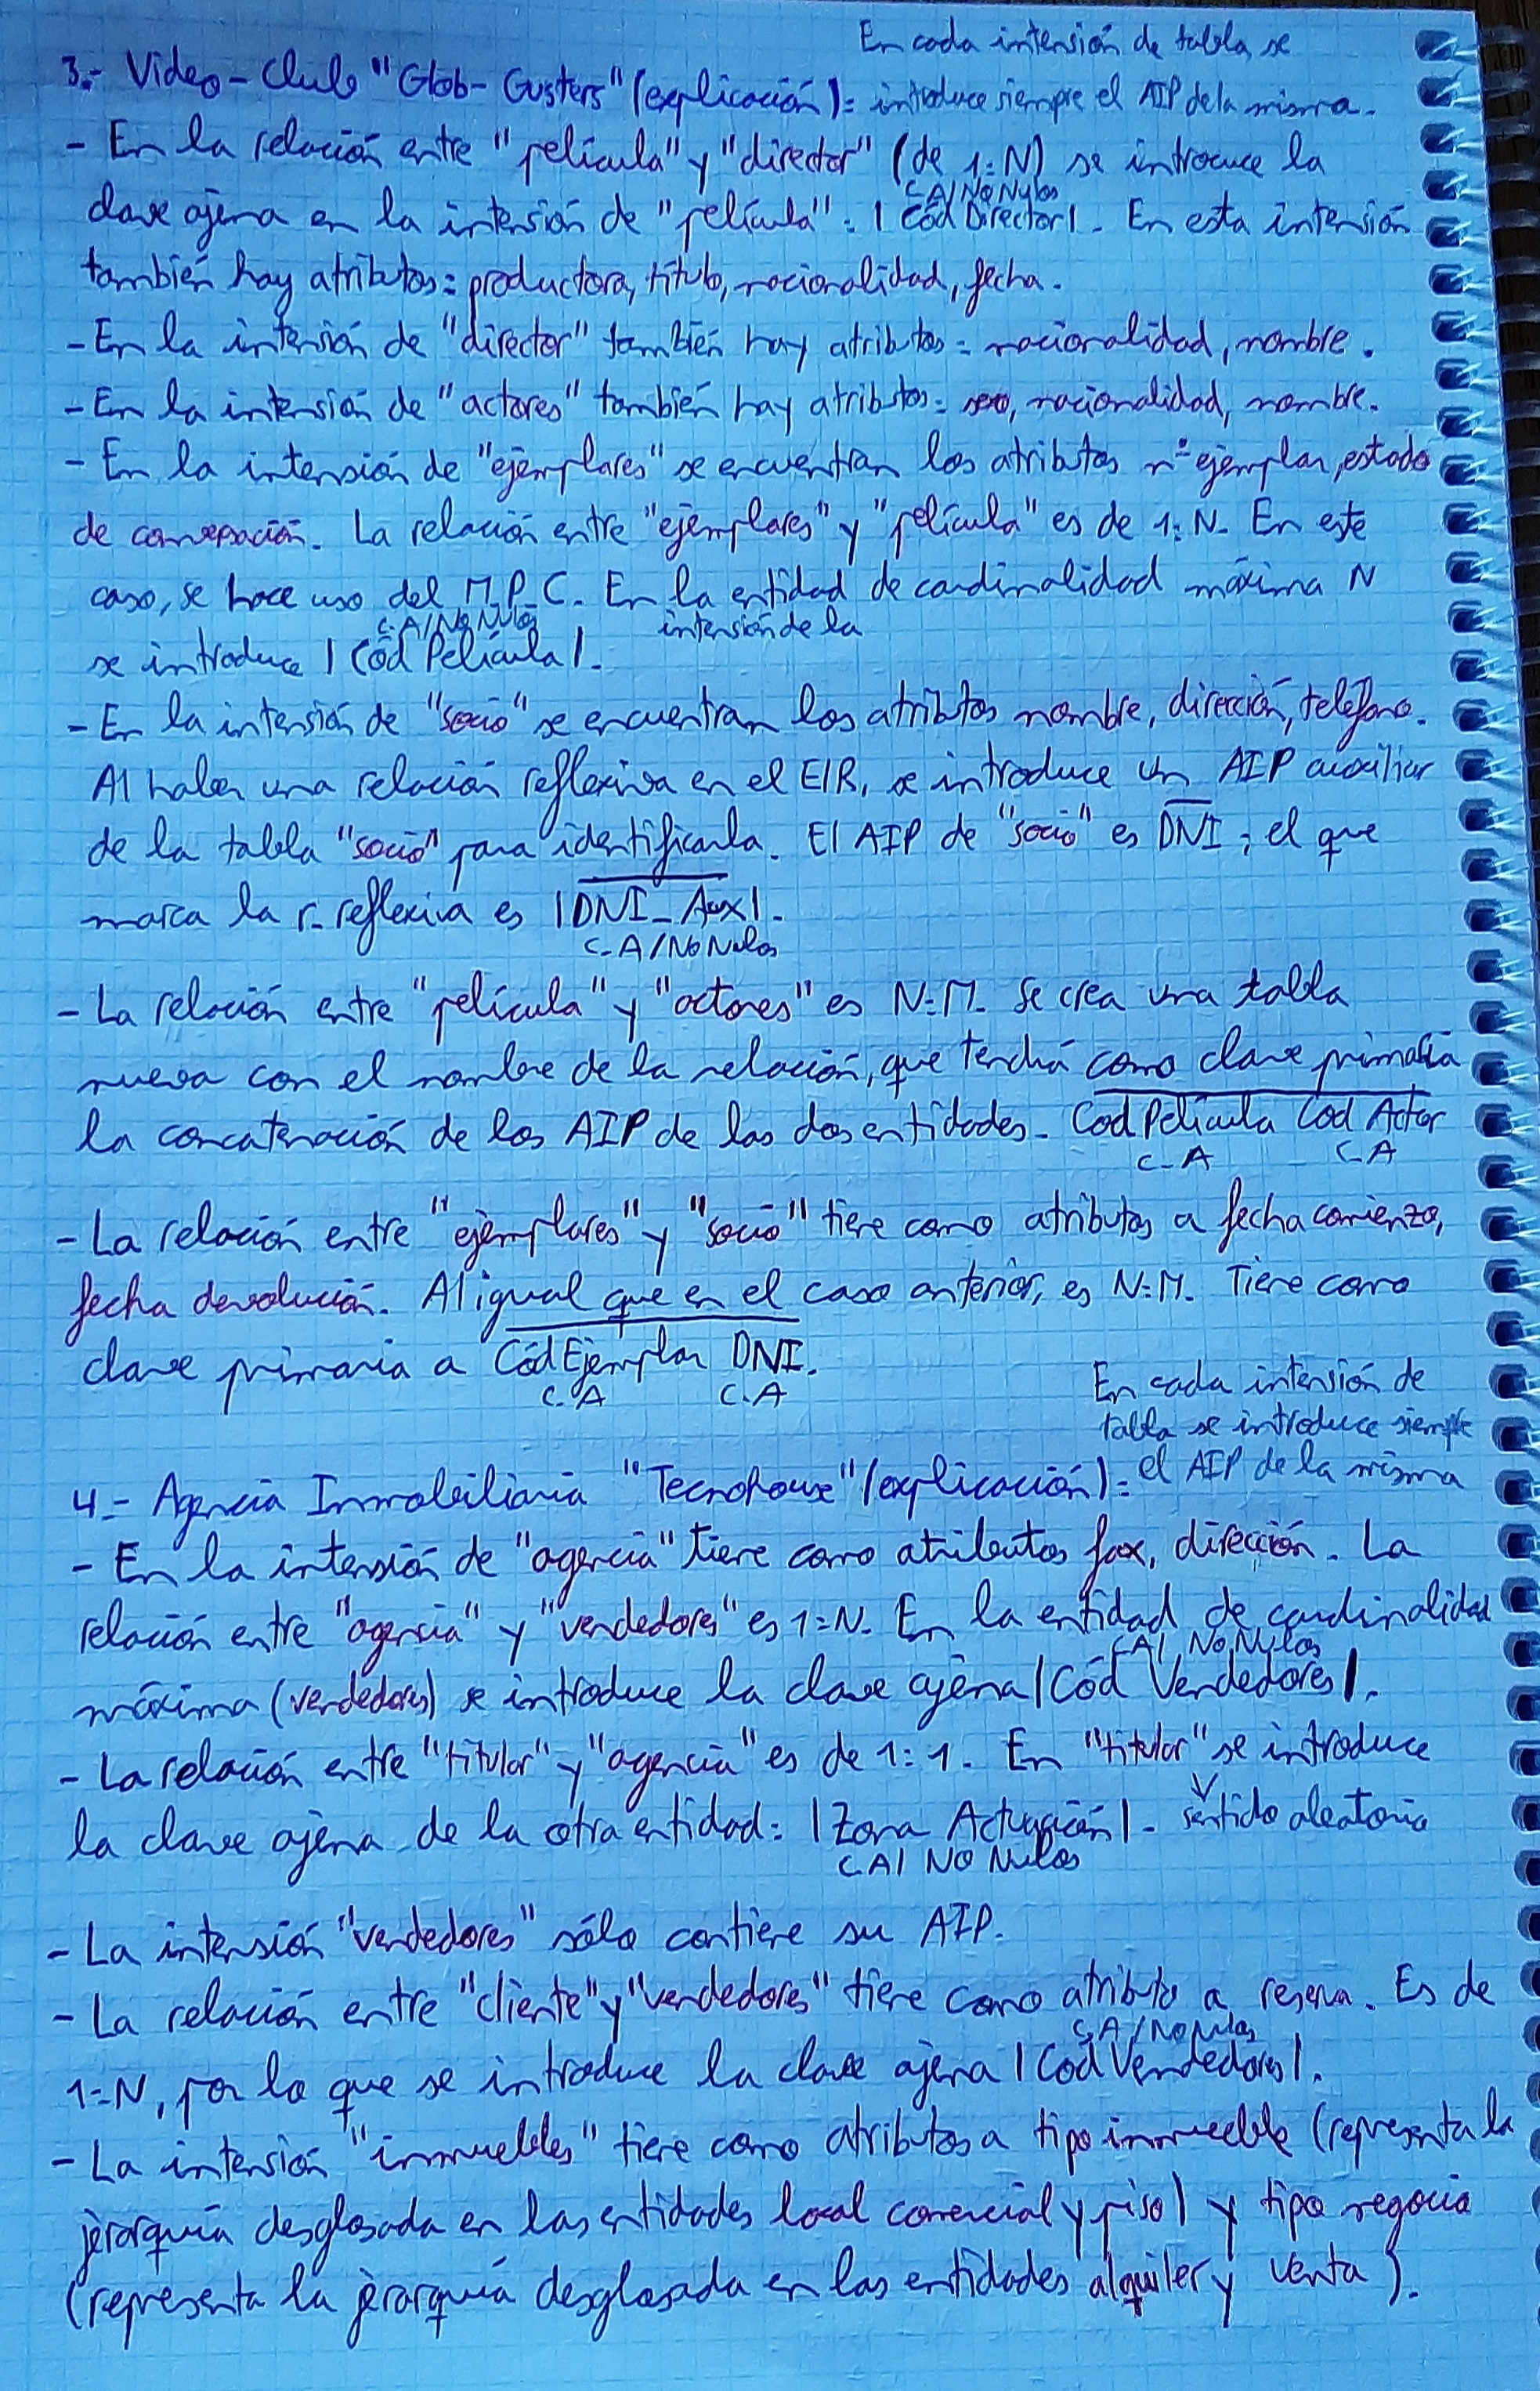 En cada intensión de tabla se
3.- Video-Club "Glob-Gusters" (explicación): introduce siempre el AIP de la misma.
- En la relación entre "película" y "director" (de 1:N) se introduce la
C.A/No Nulos
clave ajena en la intensión de "película": |Cód Director|. En esta intensión
también hay atributos: productora, título, nacionalidad, fecha.
- En la intensión de "director" también hay atributos: nacionalidad, nombre.
- En la intensión de "actores" también hay atributos: sexo, nacionalidad, nombre.
- En la intensión de "ejemplares" se encuentran los atributos nº ejemplar, estado
de conservación. La relación entre "ejemplares" y "película" es de 1:N. En este
caso, se hace uso del M.P.C. En la entidad de cardinalidad máxima N
C.A/No Nulos intensión de la
se introduce |Cód Película|.
- En la intensión de "socio" se encuentran los atributos nombre, dirección, teléfono.
Al haber una relación reflexiva en el E/R, se introduce un AIP auxiliar
de la tabla "socio" para identificarla. El AIP de "socio" es DNI; el que
marca la r. reflexiva es |DNI_Aux|.
C.A/No Nulos
- La relación entre "película" y "actores" es N:M. Se crea una tabla
nueva con el nombre de la relación, que tendrá como clave primaria
la concatenación de los AIP de las dos entidades. Cod Película Cod Actor
C.A C.A
- La relación entre "ejemplares" y "socio" tiene como atributos a fecha comienzo,
fecha devolución. Al igual que en el caso anterior, es N:M. Tiene como
clave primaria a Cód Ejemplar DNI.
C.A C.A
En cada intensión de
tabla se introduce siempre
4.- Agencia Inmobiliaria "Tecnohouse" (explicación): el AIP de la misma
- En la intensión de "agencia" tiene como atributos fax, dirección. La
relación entre "agencia" y "vendedores" es 1:N. En la entidad de cardinalidad
CA/ No Nulos
máxima (vendedores) se introduce la clave ajena |Cód Vendedores|.
- La relación entre "titular" y "agencia" es de 1:1. En "titular" se introduce
la clave ajena de la otra entidad: |Zona Actuación|. sentido aleatorio
CA/ NO Nulos
- La intensión "vendedores" sólo contiene su AIP.
- La relación entre "cliente" y "vendedores" tiene como atributo a reserva. Es de
C.A/No Nulos
1:N, por lo que se introduce la clave ajena |Cod Vendedores|.
- La intensión "inmuebles" tiene como atributos a tipo inmueble (representa la
jerarquía desglosada en las entidades local comercial y piso) y tipo negocio
(representa la jerarquía desglosada en las entidades alquiler y venta).